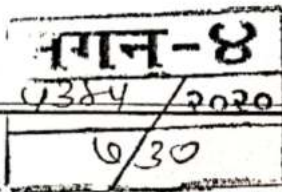 नगन-४
५३४५/२०२०
७/३०